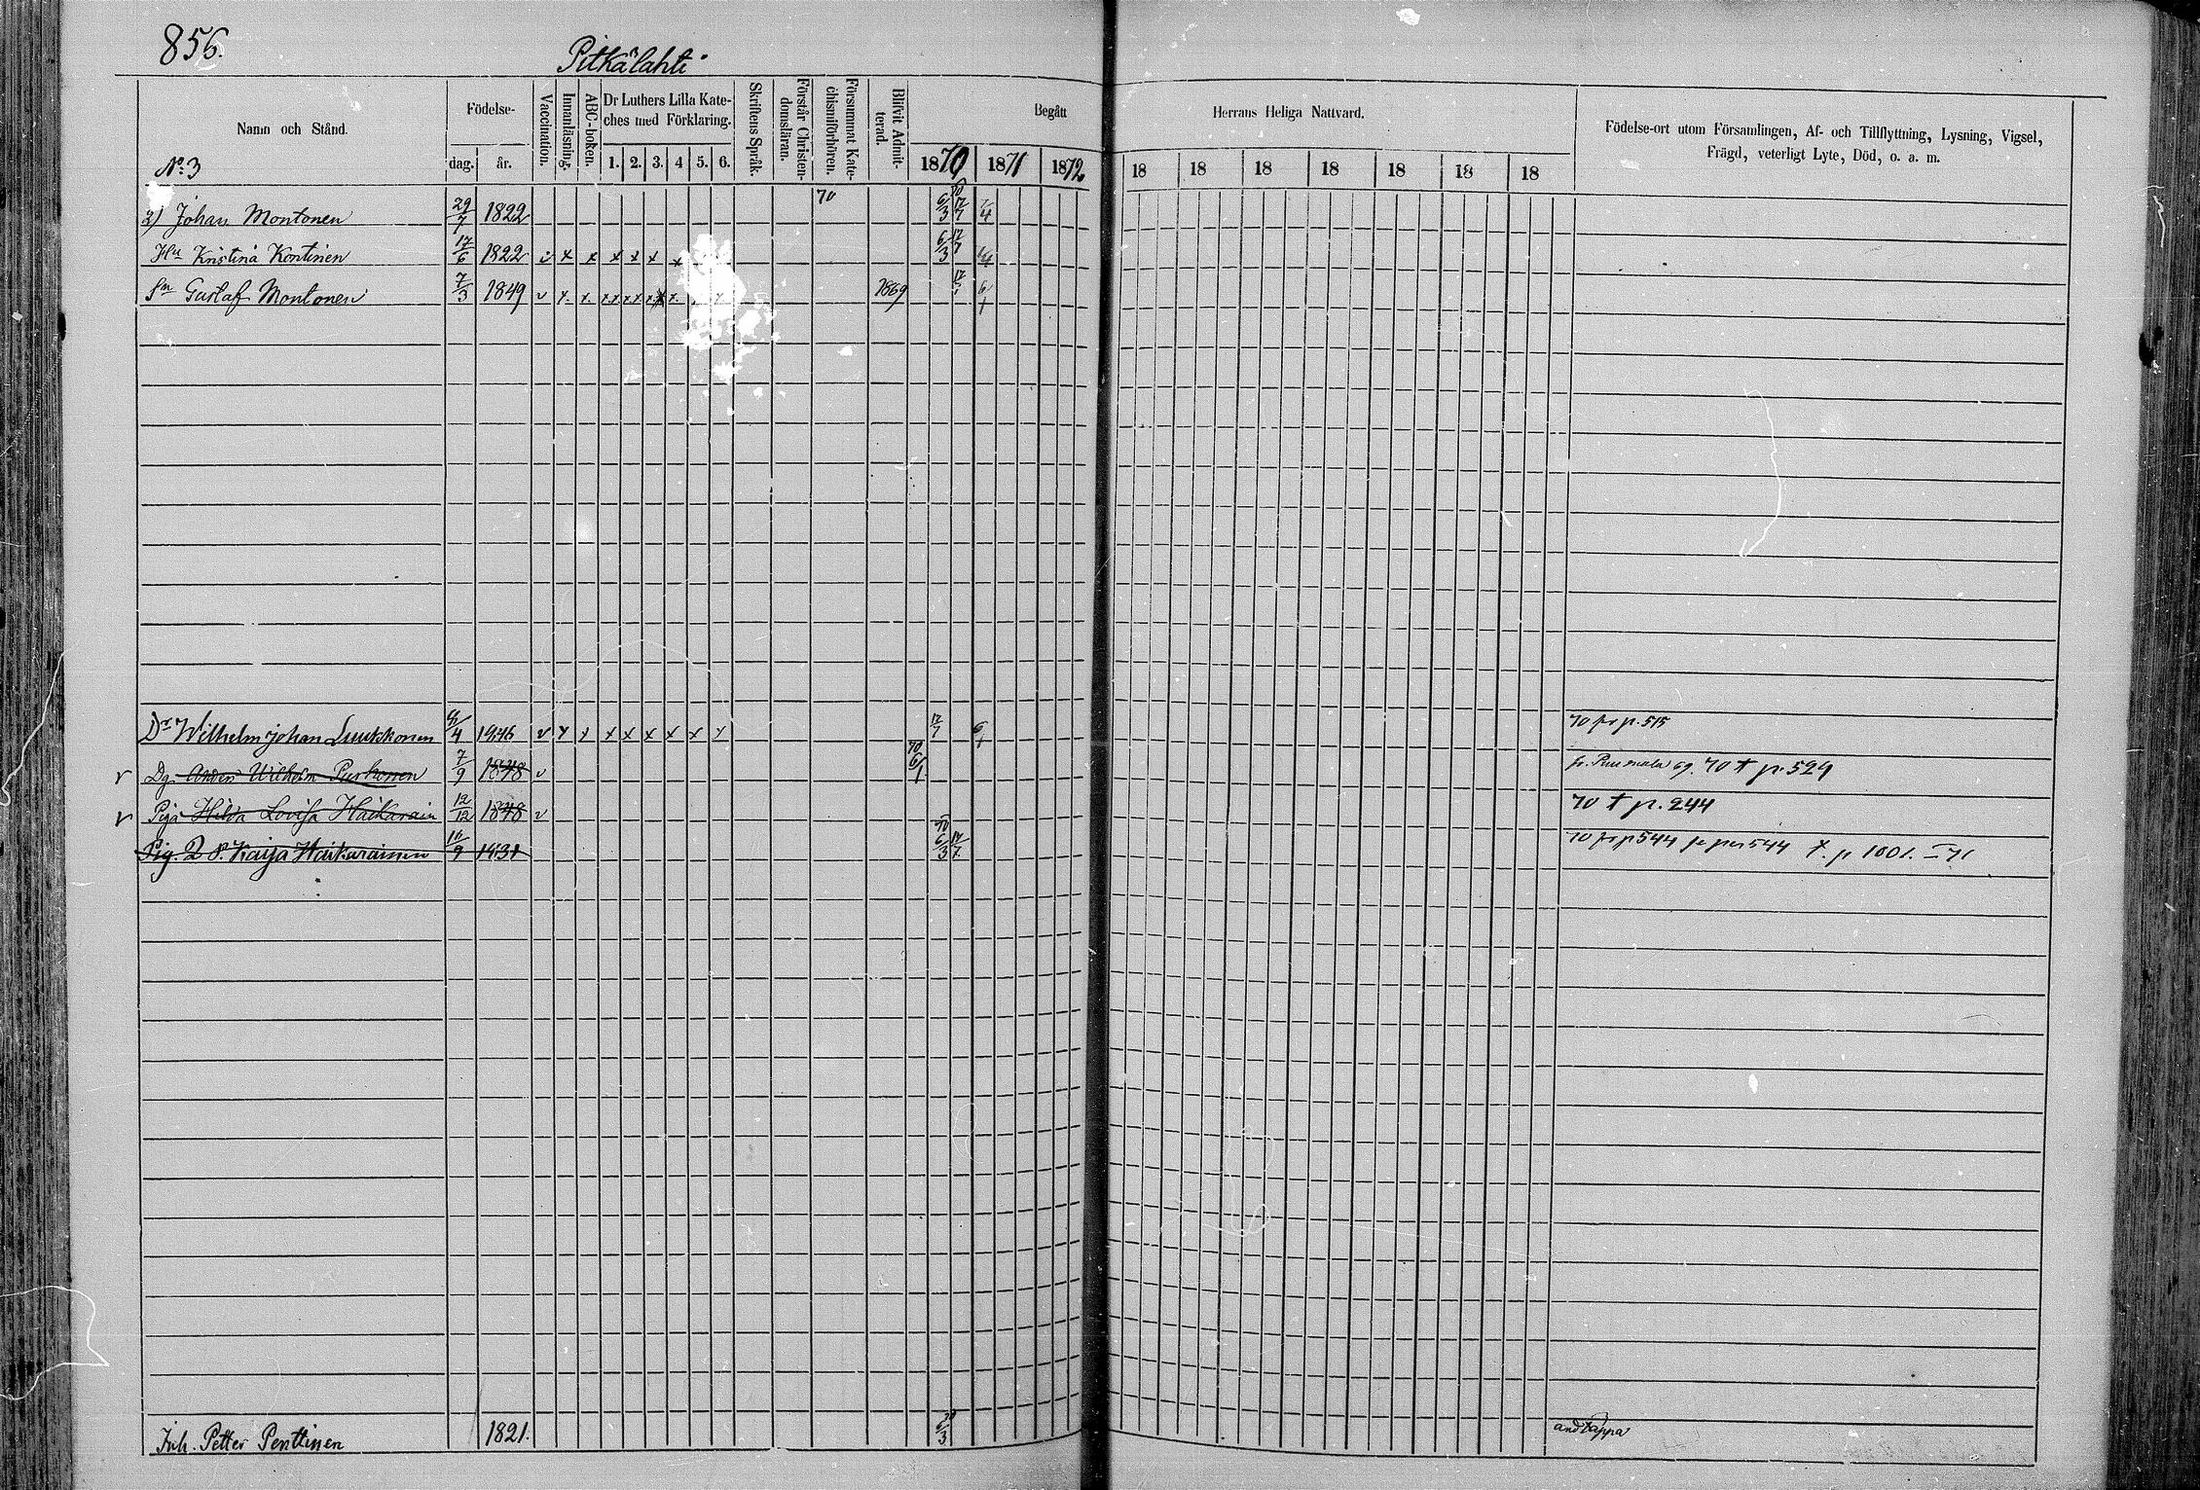 856.
Pitkälahti
Namn och Stånd.
No 3
Födelse-
dag. år.
Vaccination.
Innanläsning.
ABC-boken.
Dr Luthers Lilla Kate-
ches med Förklaring.
1. 2. 3. 4 5. 6.
Skriftens Språk.
Förstår Christen-
domsläran.
Försummat Kate-
chismiförhören.
Blifvit Admit-
terad.
Begått
Herrans Heliga Nattvard.
1870 1871 1872
18 18 18 18 18 18 18
Födelse-ort utom Församlingen, Af- och Tillflyttning, Lysning, Vigsel,
Frägd, veterligt Lyte, Död, o. a. m.
2) Johan Montonen 29/7 1822 70 6/3 17/7
Hu Kristina Kontinen 17/6 1822 v x x x x x x 6/3 17/7
Sn Gustaf Montonen 7/3 1849 v x x 1869 17/7
Dr Wilhelm Johan Luukkonen /4 1846 v x x x x x x x x 17/7 70 fr p. 515
v Dg. Anders Wilhelm Purhonen 7/9 1848 v 70 6/1 fr. Puumala 69. 70 t p. 529
v Piga Hilda Lovisa Haikarain 12/12 1848 v 70 t p. 244
Pig. D. S. Kaija Haikarainen 10/9 1831 70 6/3 17/7 70 fr p 544 t. p 1001. 71
Inh. Petter Penttinen 1821. 70 6/3